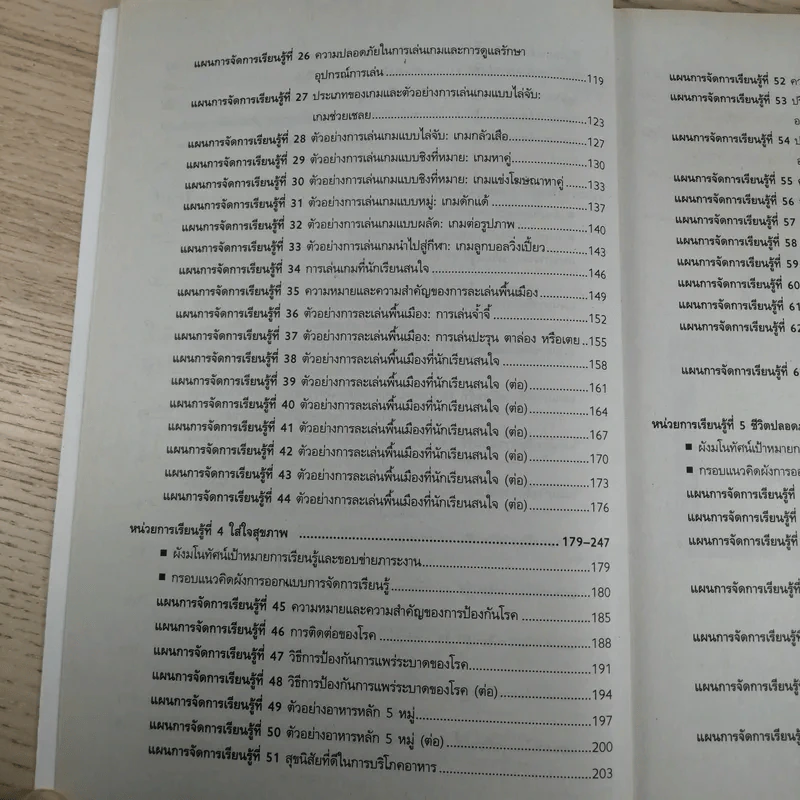 แผนการจัดการเรียนรู้ที่ 26 ความปลอดภัยในการเล่นเกมและการดูแลรักษา
อุปกรณ์การเล่น ........ 119
แผนการจัดการเรียนรู้ที่ 27 ประเภทของเกมและตัวอย่างการเล่นเกมแบบไล่จับ:
เกมช่วยเชลย ........ 123
แผนการจัดการเรียนรู้ที่ 28 ตัวอย่างการเล่นเกมแบบไล่จับ: เกมกลัวเสือ ........ 127
แผนการจัดการเรียนรู้ที่ 29 ตัวอย่างการเล่นเกมแบบชิงที่หมาย: เกมหาคู่ ........ 130
แผนการจัดการเรียนรู้ที่ 30 ตัวอย่างการเล่นเกมแบบชิงที่หมาย: เกมแข่งโฆษณาหาคู่ ....... 133
แผนการจัดการเรียนรู้ที่ 31 ตัวอย่างการเล่นเกมแบบหมู่: เกมดักแด้ ........ 137
แผนการจัดการเรียนรู้ที่ 32 ตัวอย่างการเล่นเกมแบบผลัด: เกมต่อรูปภาพ ........ 140
แผนการจัดการเรียนรู้ที่ 33 ตัวอย่างการเล่นเกมนำไปสู่กีฬา: เกมลูกบอลวิ่งเปี้ยว ........ 143
แผนการจัดการเรียนรู้ที่ 34 การเล่นเกมที่นักเรียนสนใจ ........ 146
แผนการจัดการเรียนรู้ที่ 35 ความหมายและความสำคัญของการละเล่นพื้นเมือง ........ 149
แผนการจัดการเรียนรู้ที่ 36 ตัวอย่างการละเล่นพื้นเมือง: การเล่นจ้ำจี้ ........ 152
แผนการจัดการเรียนรู้ที่ 37 ตัวอย่างการละเล่นพื้นเมือง: การเล่นปะรุน ตาล่อง หรือเตย .. 155
แผนการจัดการเรียนรู้ที่ 38 ตัวอย่างการละเล่นพื้นเมืองที่นักเรียนสนใจ ........ 158
แผนการจัดการเรียนรู้ที่ 39 ตัวอย่างการละเล่นพื้นเมืองที่นักเรียนสนใจ (ต่อ) ........ 161
แผนการจัดการเรียนรู้ที่ 40 ตัวอย่างการละเล่นพื้นเมืองที่นักเรียนสนใจ (ต่อ) ........ 164
แผนการจัดการเรียนรู้ที่ 41 ตัวอย่างการละเล่นพื้นเมืองที่นักเรียนสนใจ (ต่อ) ........ 167
แผนการจัดการเรียนรู้ที่ 42 ตัวอย่างการละเล่นพื้นเมืองที่นักเรียนสนใจ (ต่อ) ........ 170
แผนการจัดการเรียนรู้ที่ 43 ตัวอย่างการละเล่นพื้นเมืองที่นักเรียนสนใจ (ต่อ) ........ 173
แผนการจัดการเรียนรู้ที่ 44 ตัวอย่างการละเล่นพื้นเมืองที่นักเรียนสนใจ (ต่อ) ........ 176
หน่วยการเรียนรู้ที่ 4 ใส่ใจสุขภาพ ........ 179–247
■ ผังมโนทัศน์เป้าหมายการเรียนรู้และขอบข่ายภาระงาน ........ 179
■ กรอบแนวคิดผังการออกแบบการจัดการเรียนรู้ ........ 180
แผนการจัดการเรียนรู้ที่ 45 ความหมายและความสำคัญของการป้องกันโรค ........ 185
แผนการจัดการเรียนรู้ที่ 46 การติดต่อของโรค ........ 188
แผนการจัดการเรียนรู้ที่ 47 วิธีการป้องกันการแพร่ระบาดของโรค ........ 191
แผนการจัดการเรียนรู้ที่ 48 วิธีการป้องกันการแพร่ระบาดของโรค (ต่อ) ........ 194
แผนการจัดการเรียนรู้ที่ 49 ตัวอย่างอาหารหลัก 5 หมู่ ........ 197
แผนการจัดการเรียนรู้ที่ 50 ตัวอย่างอาหารหลัก 5 หมู่ (ต่อ) ........ 200
แผนการจัดการเรียนรู้ที่ 51 สุขนิสัยที่ดีในการบริโภคอาหาร ........ 203
แผนการจัดการเรียนรู้ที่ 52
แผนการจัดการเรียนรู้ที่ 53
แผนการจัดการเรียนรู้ที่ 54
แผนการจัดการเรียนรู้ที่ 55
แผนการจัดการเรียนรู้ที่ 56
แผนการจัดการเรียนรู้ที่ 57
แผนการจัดการเรียนรู้ที่ 58
แผนการจัดการเรียนรู้ที่ 59
แผนการจัดการเรียนรู้ที่ 60
แผนการจัดการเรียนรู้ที่ 61
แผนการจัดการเรียนรู้ที่ 62
แผนการจัดการเรียนรู้ที่ 6
หน่วยการเรียนรู้ที่ 5 ชีวิตปลอดภ
■ ผังมโนทัศน์เป้าหมายกา
■ กรอบแนวคิดผังการออ
แผนการจัดการเรียนรู้ที่
แผนการจัดการเรียนรู้ที่
แผนการจัดการเรียนรู้ที่
แผนการจัดการเรียนรู้ที่
แผนการจัดการเรียนรู้ที่
แผนการจัดการเรียนรู้ที่
แผนการจัดการเรียนรู้ที่